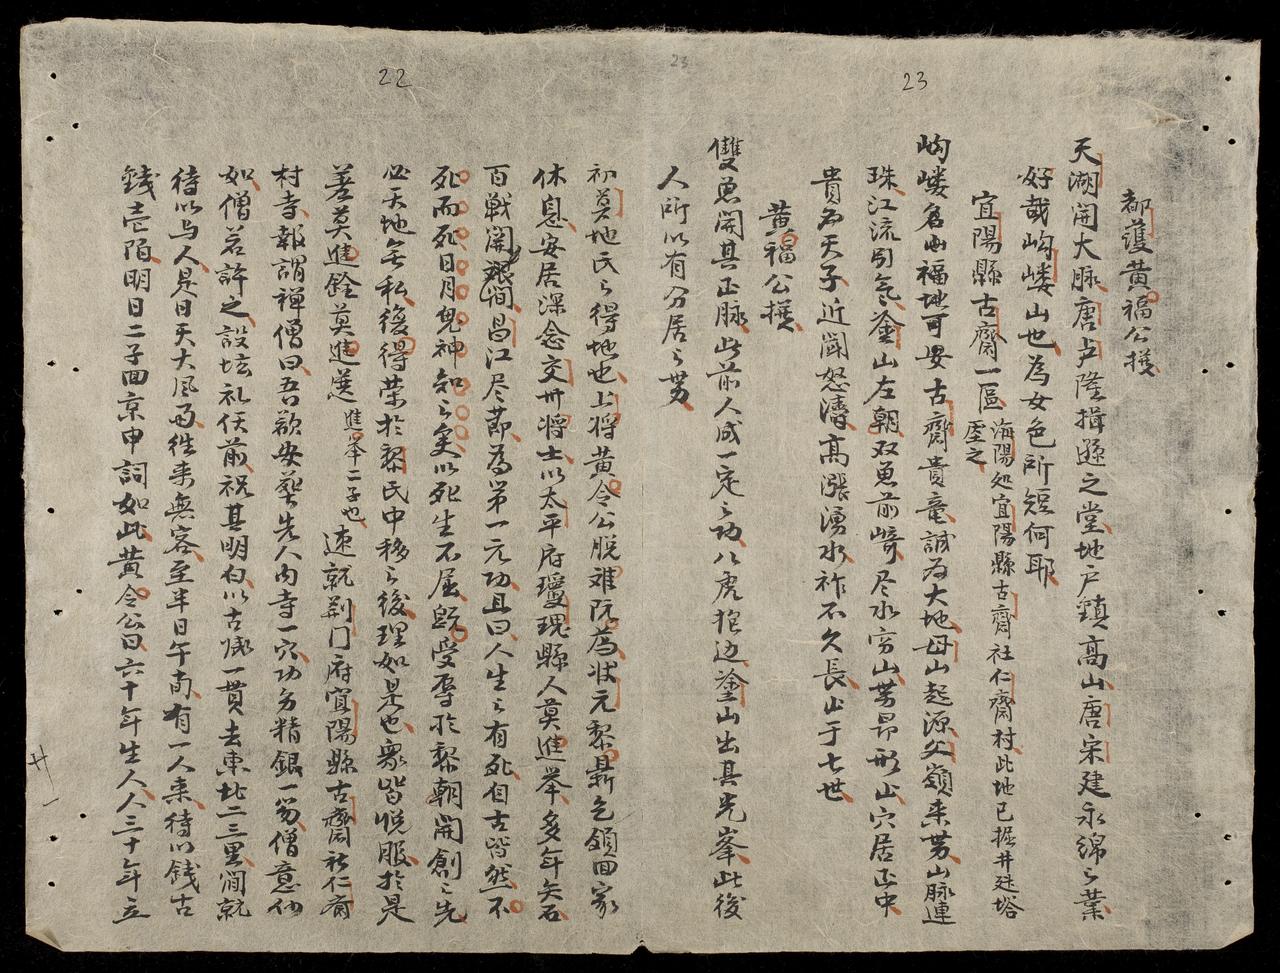 23
23
22
都護黄福公撰
天湖開大脉唐盧隆揖遜之堂地户鎮髙山唐宋建永綿〻葉
好哉岣嶁山也為女色所短何耶
宜陽縣古齋一區 海陽処宜陽縣古齋社仁齋村此地已掘井廷塔
壓之
岣嶁名山福地可安古齋貴竜誠為大地母山起源父嶺来势山脉連
珠江流引氣釜山左朝双鱼前﨑尽水穷山势昂形山穴居正中
貴為天子近闻怒濤髙漲湧水祚不久長止于七世
黄福公撰
雙魚開其正脉此前人成一定之功八虎抱边塗山出其光峯此後
人所以有分居之势
初莫地氏之得地也上将黄令公脱难阮為状元黎鼐乞領回家
休息安居深念交州将士以太平府瓊瑰縣人莫進举多年矢石
百戦開艰间昌江尽莭為第一元功且曰人生之有死自古皆然不
死而死日月鬼神知之矣以死生不屈既受辱於黎朝開創之先
必天地無私後得荣於黎民中移之後理如是也衆皆悦服於是
差莫進銓莫進選 進举二子也 速就荆门府宜陽縣古齋社仁齋
村寺報謂禅僧曰吾欲安塟先人内寺一穴功劳精銀一笏僧意仙
如僧若許之設坛礼伏前祝其明白以古𠸗一貫去東北二三里间就
待以与人是日天大风雨往来無客至半日午有有一人来待以錢古
錢壱陌明日二子回京申詞如此黄令公曰六十年生人人三十年立
廿一